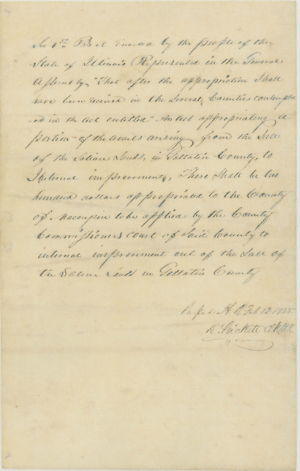 Sec 1st Be it enacted by the people of the
State of Illinois Represented in the General
Assembly, That after the appropriation shall
have been in the several Counties contemplat
ed in the act entitled An act appropriating a
portion of the avails arising from the Sale
of the Saline Lands, in Gallatin County, to
Internal improvements, There shall be two
hundred dollars appropriated to the County
of Macoupin to be applied by the County
Commissioners court of said County to
internal improvement out of the Sale of
the Saline lands in Gallatin County
H R Feb 12 1835
D. Prickett Clk H.R.